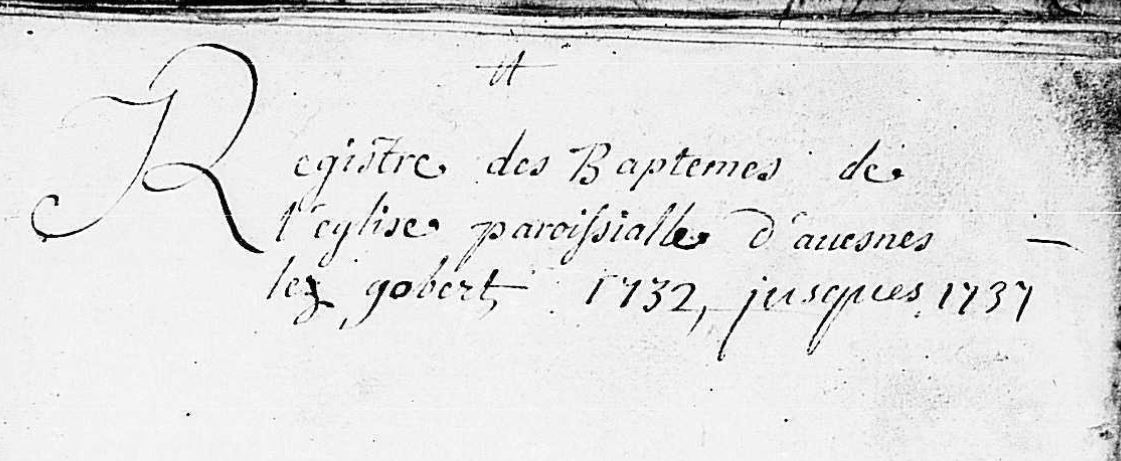 Registre des Baptemes de
l'eglise paroissialle d'auesnes
lez gobert 1732, jusques 1737